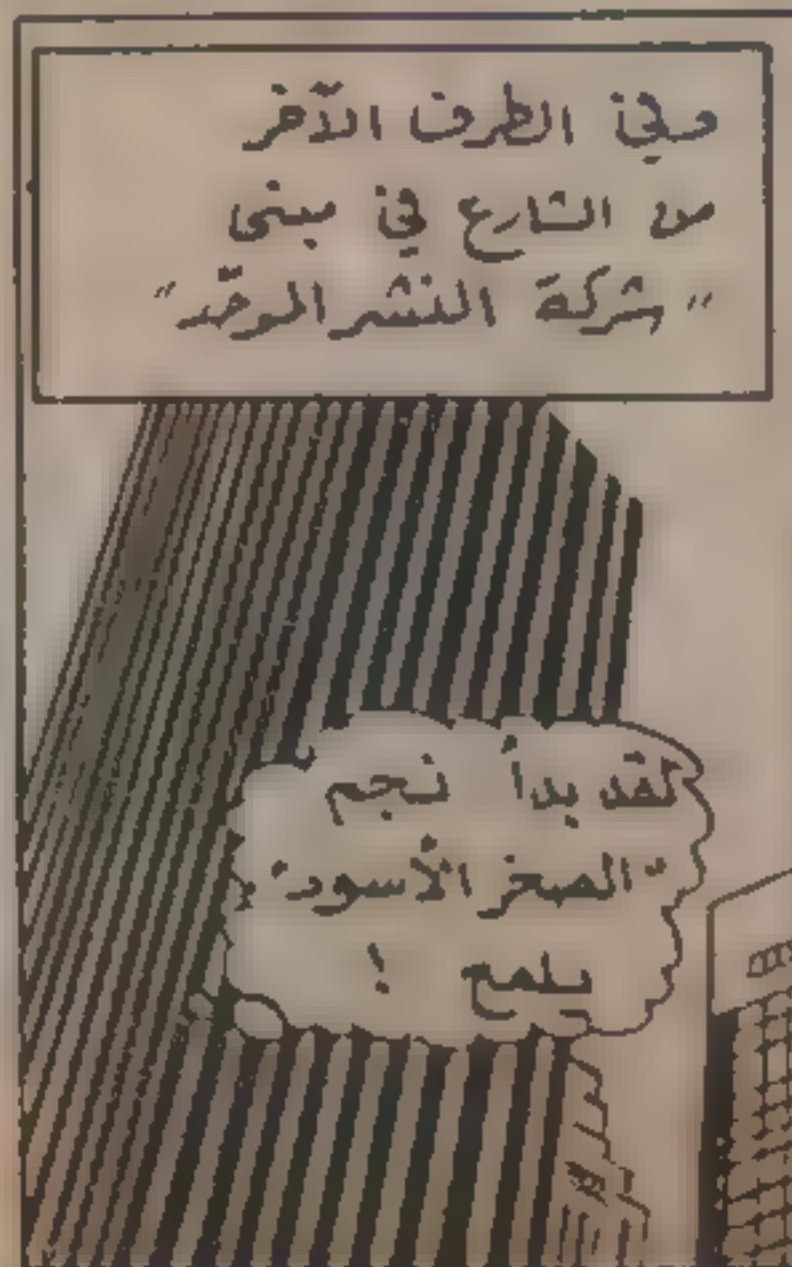 وفي الطرف الآخر
من الشارع في مبنى
"شركة النشر الموحّد"
لقد بدأ نجم
"الصخر الأسود"
يلمع !